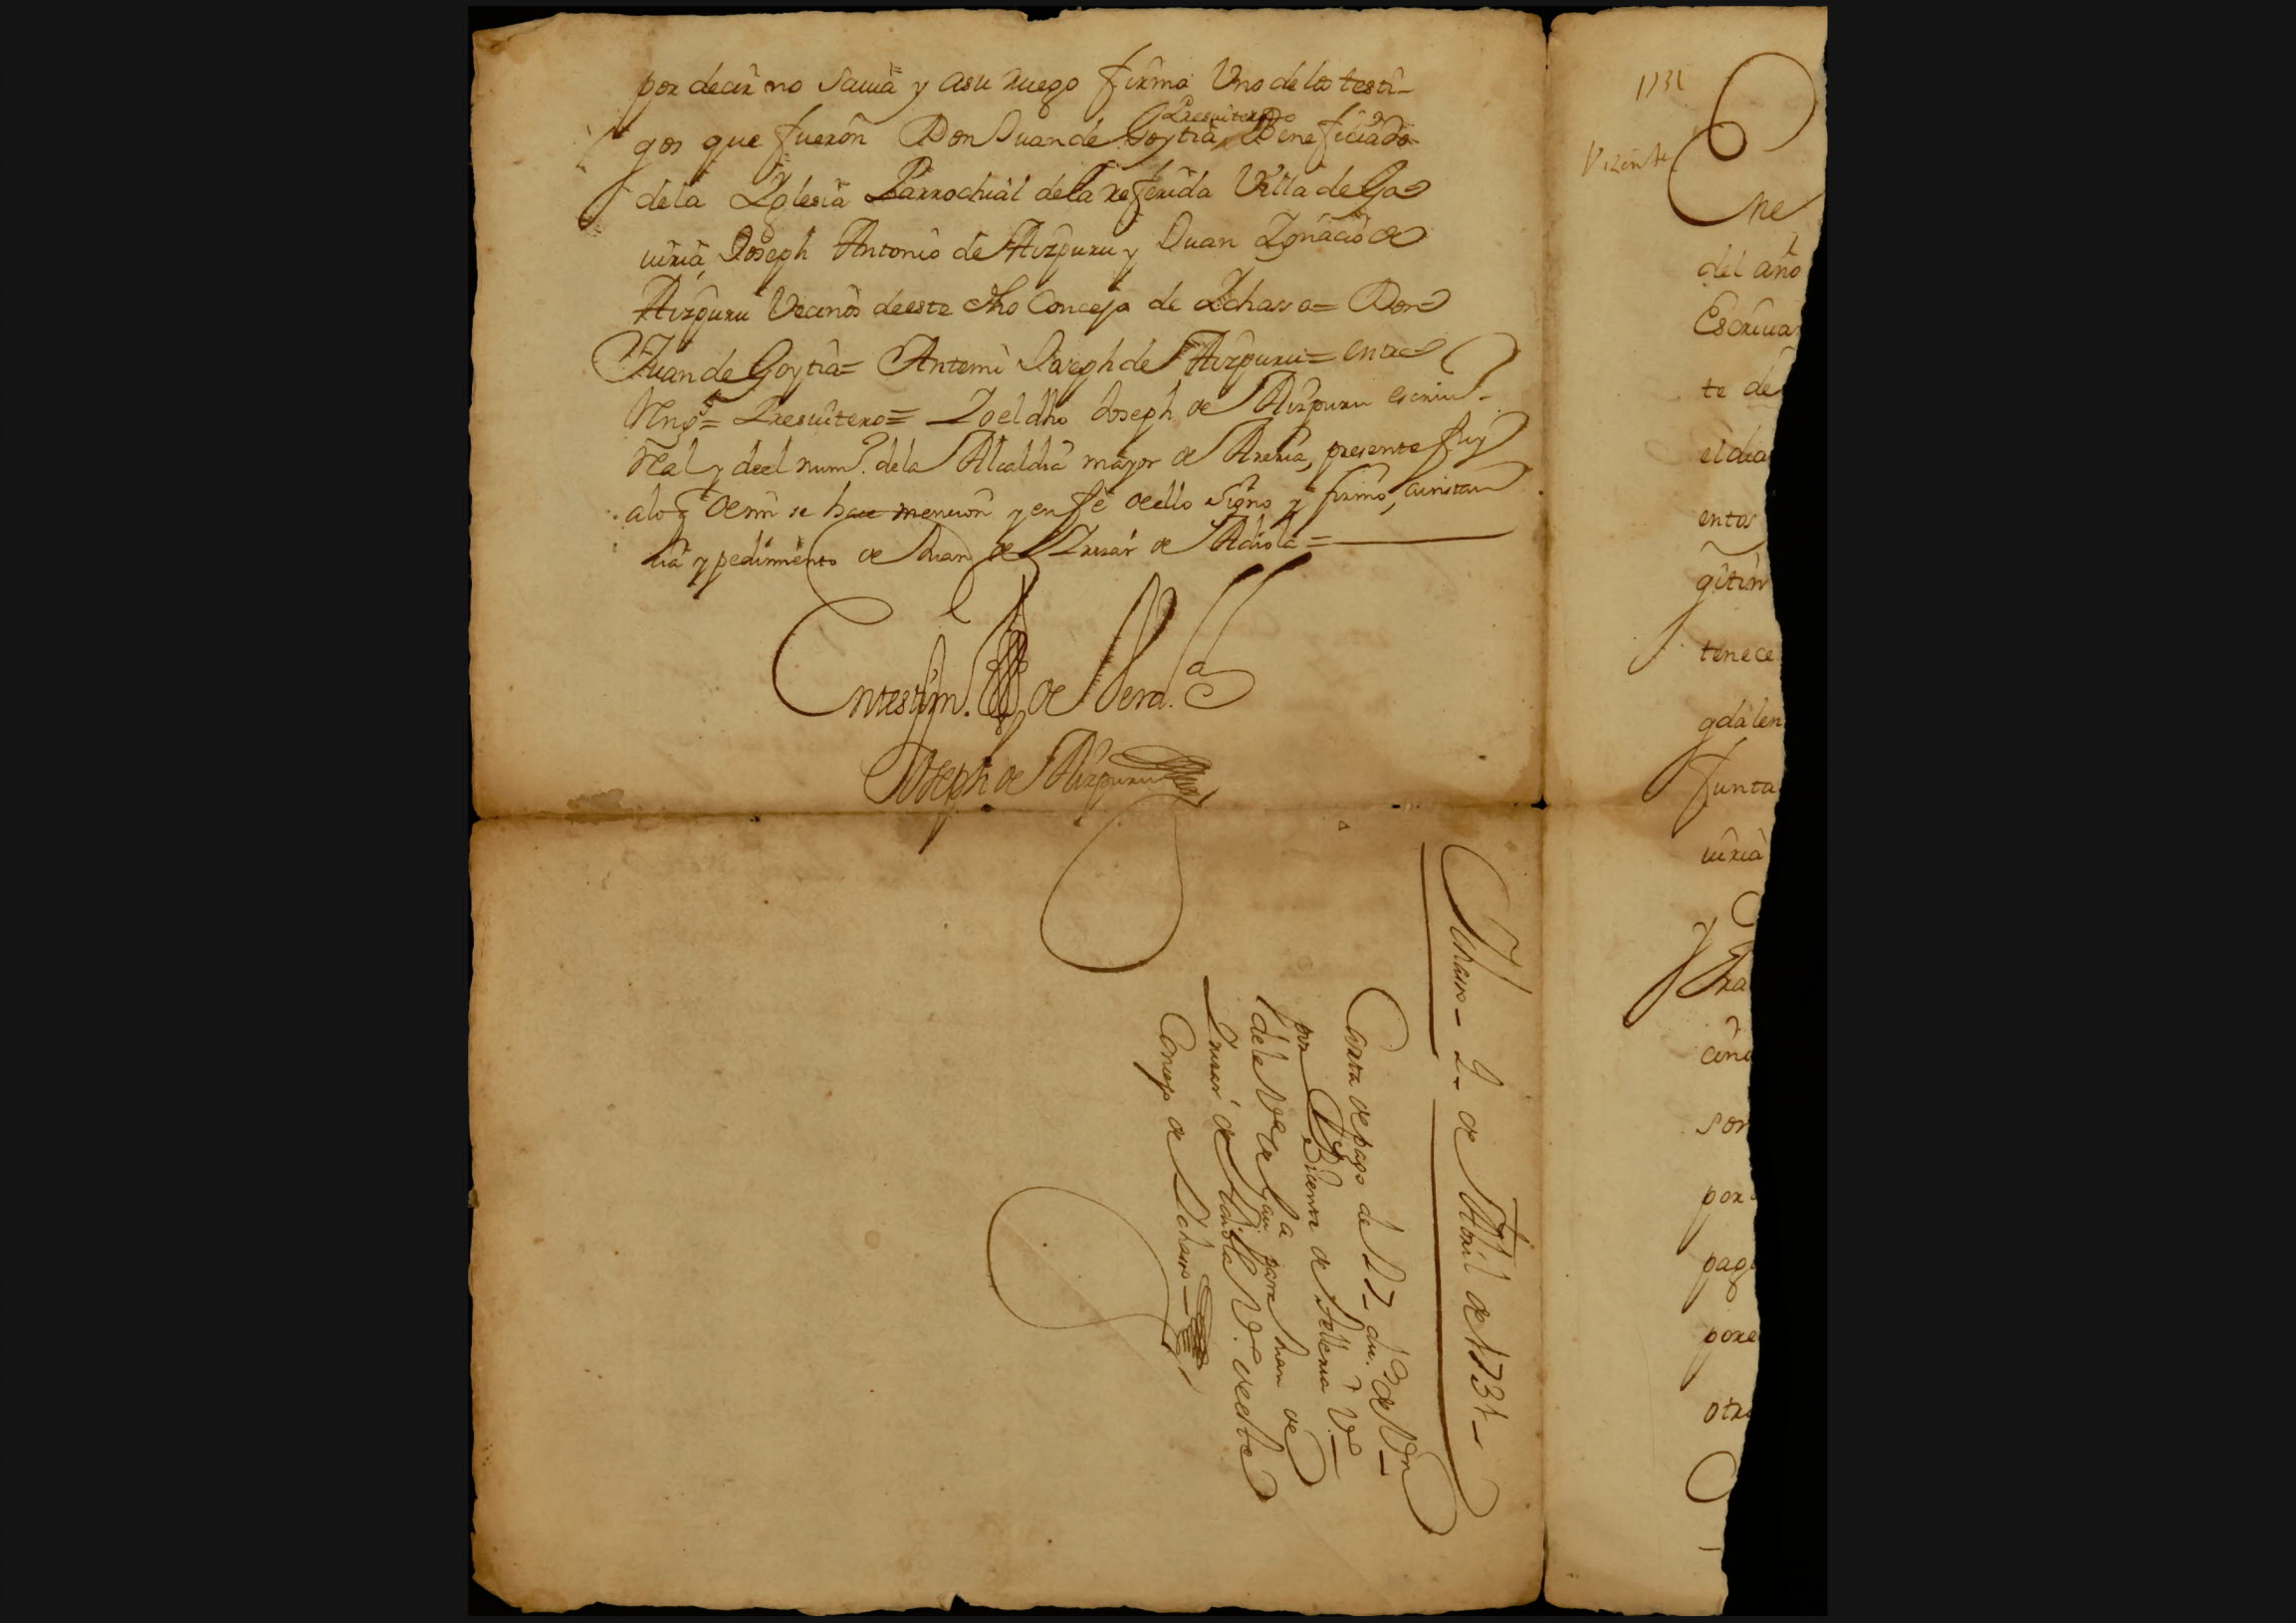 por decir no sauia y asu ruego firmo Uno delos testi-
gos que fueron Don Juan de Goytia Presuitero Beneficiado
dela Iglesia Parrochial dela referida Villa de Ga
uiria, Joseph Antonio de Aizpuru y Juan Ignacio de
Aizpuru Vecinos deeste dho Concejo de Ichasso= Don
Juan de Goytia= Antemi Joseph de Aizpuru= entre
Rengs= Presuitero= Yo el dho Joseph de Aizpuru escriu.º
Real y deel num.º dela Alcaldia mayor de Areria, presente fuy
alo q de mi se hace mencion y en fe deello signo y firmo, ainstan
cia y pedimiento de Juan de Irizar de Adiola=
Entestim.º de Verd.
Joseph de Aizpuru
Ichasso - 2 - de Abril de 1731 -
Carta de pago de 17 - du.s de Vn
por Bicente de V.º
dela V.ª de Gau.ª para Juan de
Irizar de Adiola V.º deeste
Concejo de Ichasso -
1731
Vizente
ne
del año
Escriua
te de
el dia
entos
gitim
tenece
gdalen
Junta
uiria
y
ra
cino
son
por
pag
pore
otr